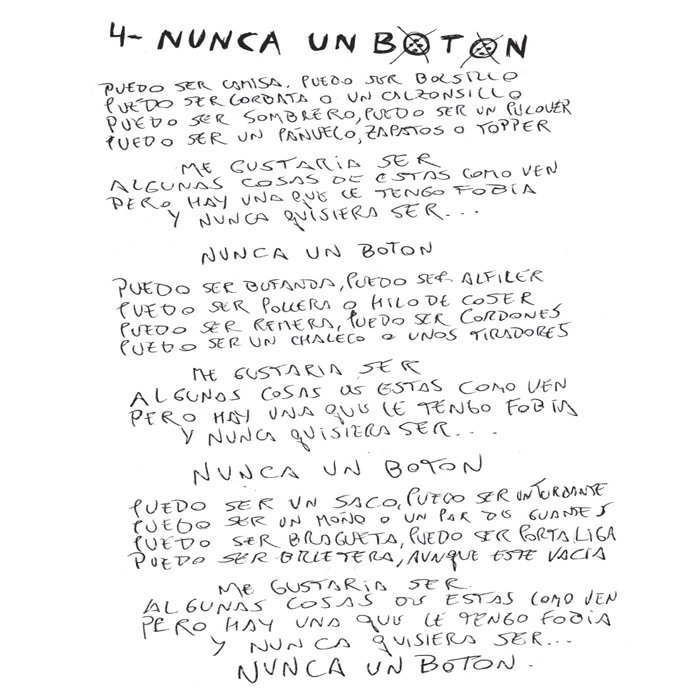 4- NUNCA UN BOTON
PUEDO SER CAMISA, PUEDO SER BOLSILLO
PUEDO SER CORBATA O UN CALZONSILLO
PUEDO SER SOMBRERO, PUEDO SER UN PULOVER
PUEDO SER UN PAÑUELO, ZAPATOS O TOPPER
ME GUSTARIA SER
ALGUNAS COSAS DE ESTAS COMO VEN
PERO HAY UNA QUE LE TENGO FOBIA
Y NUNCA QUISIERA SER...
NUNCA UN BOTON
PUEDO SER BUFANDA, PUEDO SER ALFILER
PUEDO SER POLLERA O HILO DE COSER
PUEDO SER REMERA, PUEDO SER CORDONES
PUEDO SER UN CHALECO O UNOS TIRADORES
ME GUSTARIA SER
ALGUNAS COSAS DE ESTAS COMO VEN
PERO HAY UNA QUE LE TENGO FOBIA
Y NUNCA QUISIERA SER...
NUNCA UN BOTON
PUEDO SER UN SACO, PUEDO SER UN TURBANTE
PUEDO SER UN MOÑO O UN PAR DE GUANTES
PUEDO SER BRAGUETA, PUEDO SER PORTALIGA
PUEDO SER BILLETERA, AUNQUE ESTE VACIA
ME GUSTARIA SER
ALGUNAS COSAS DE ESTAS COMO VEN
PERO HAY UNA QUE LE TENGO FOBIA
Y NUNCA QUISIERA SER...
NUNCA UN BOTON.